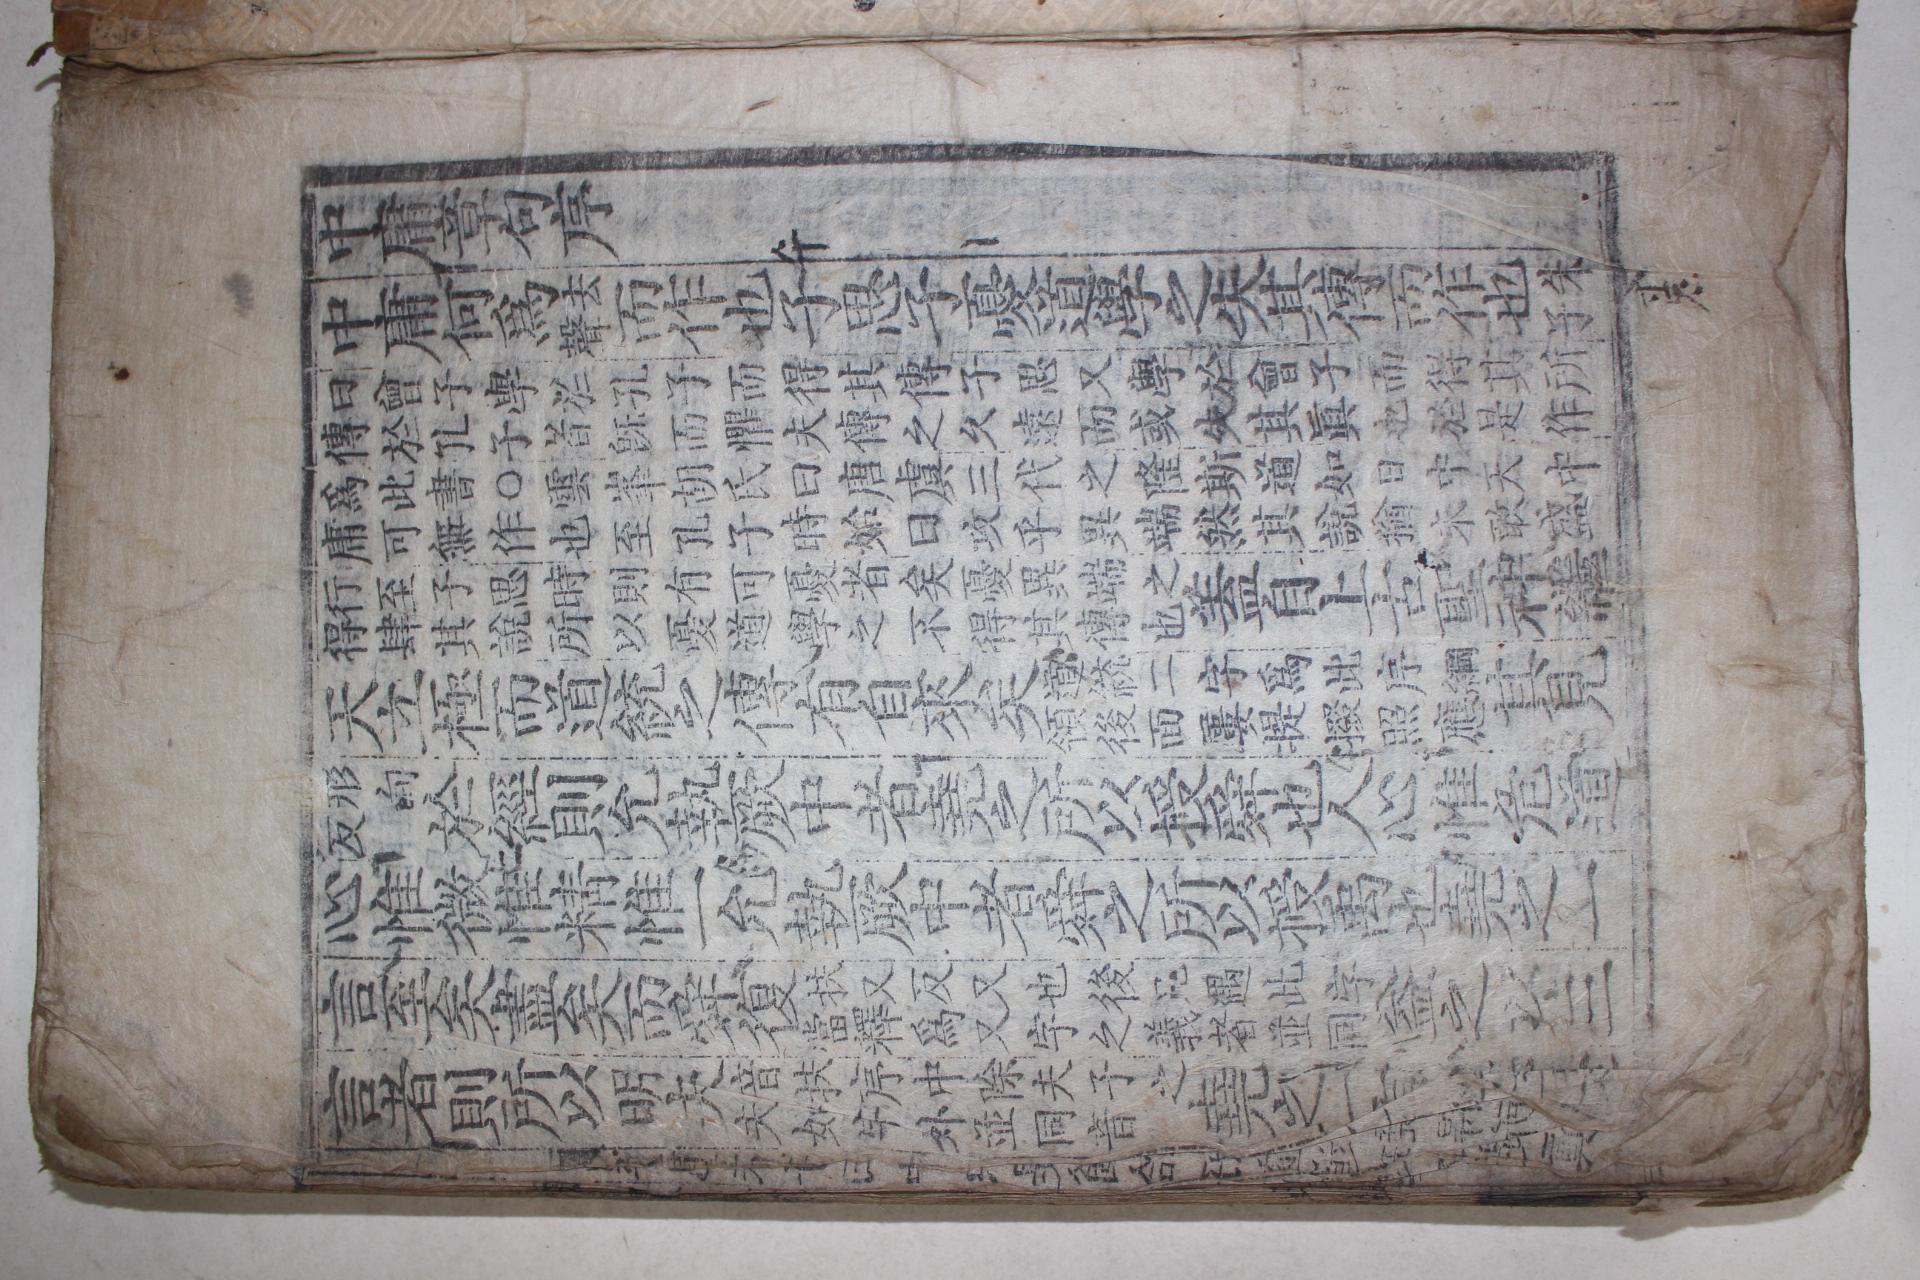 中庸章句序
中庸何爲去聲而作也子思子憂道學之失其傳而作也朱子
曰曾子學於孔子而得其傳子思又學於曾子而得其所
傳於孔子者旣而懼夫傳之久遠而或失其眞也於是作
爲此書○雲峯胡氏曰唐虞三代之隆斯道如日中天中
庸可無作也至孔子時始曰攻乎異端然其說猶未敢盛
行至子思時則有可憂者矣憂異端之
得肆其說所以憂道學之不得其傳也蓋自上古聖神繼
天立極而道統之傳有自來矣道統二字爲此序綱領後面屢提掇照應其見
形甸反於經則允執厥中者堯之所以授舜也人心惟危道
心惟微惟精惟一允執厥中者舜之所以授禹也堯之一
言至矣盡矣而舜復扶又反又也後凡遇此字當釋爲又字之義者並同益之以三
言者則所以明夫音扶序中除夫子之夫如字外並同音堯之一言